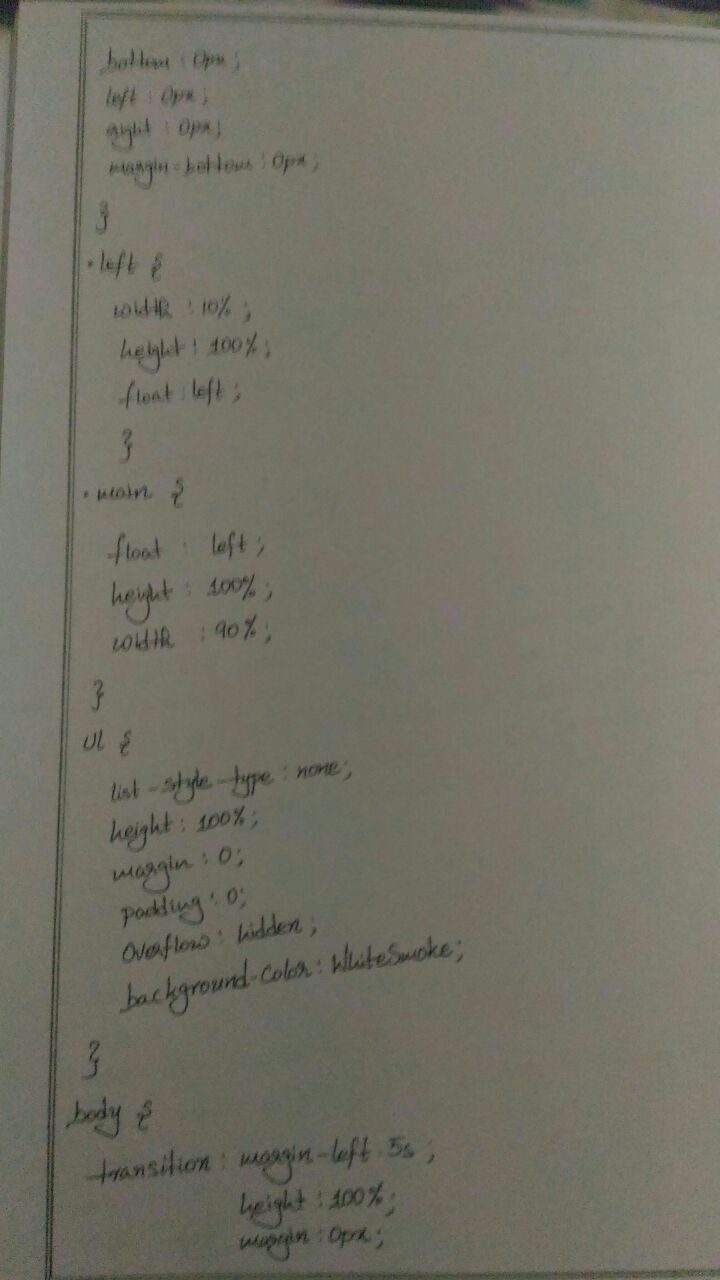 bottom : 0px ;
left : 0px ;
right : 0px ;
margin-bottom : 0px ;
}
.left {
width : 10% ;
height : 100% ;
float : left ;
}
.main {
float : left ;
height : 100% ;
width : 90% ;
}
ul {
list-style-type : none ;
height : 100% ;
margin : 0 ;
padding : 0 ;
overflow : hidden ;
background-color : WhiteSmoke ;
}
body {
transition : margin-left .5s ;
height : 100% ;
margin : 0px ;